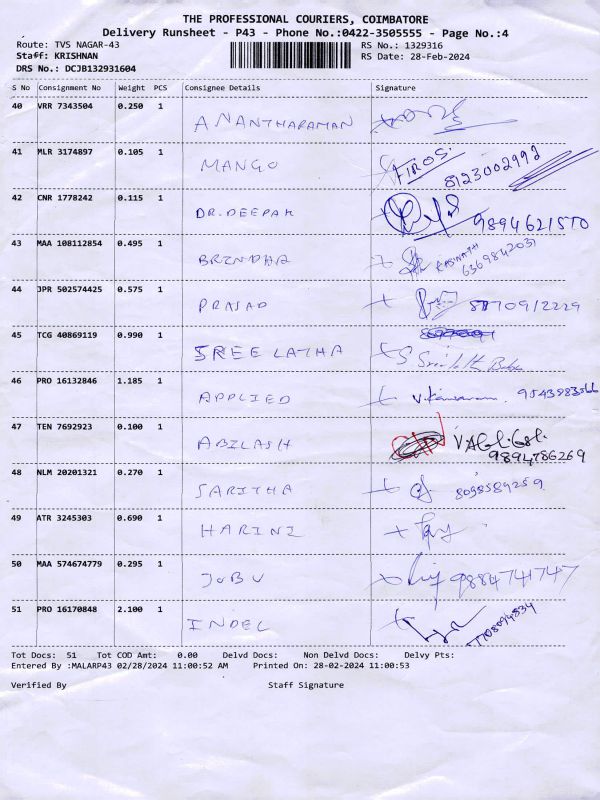 THE PROFESSIONAL COURIERS, COIMBATORE
Delivery Runsheet - P43 - Phone No.:0422-3505555 - Page No.:4
Route: TVS NAGAR-43 RS No.: 1329316
Staff: KRISHNAN RS Date: 28-Feb-2024
DRS No.: DCJB132931604
S No Consignment No Weight PCS Consignee Details Signature
40 VRR 7343504 0.250 1 ANANTHARAMAN
41 MLR 3174897 0.105 1 MANGO FIROS. 8123002992
42 CNR 1778242 0.115 1 DR.DEEPAK 9894621570
43 MAA 108112854 0.495 1 BRINDHA KASINATH 6369842031
44 JPR 502574425 0.575 1 PRASAD 8870912229
45 TCG 40869119 0.990 1 SREE LATHA S
46 PRO 16132846 1.185 1 APPLIED 9543983566
47 TEN 7692923 0.100 1 ABILASH 9894786269
48 NLM 20201321 0.270 1 SARITHA 8098589259
49 ATR 3245303 0.690 1 HARINI
50 MAA 574674779 0.295 1 JOBU 9884741747
51 PRO 16170848 2.100 1 INDEL
Tot Docs: 51 Tot COD Amt: 0.00 Delvd Docs: Non Delvd Docs: Delvy Pts:
Entered By :MALARP43 02/28/2024 11:00:52 AM Printed On: 28-02-2024 11:00:53
Verified By Staff Signature